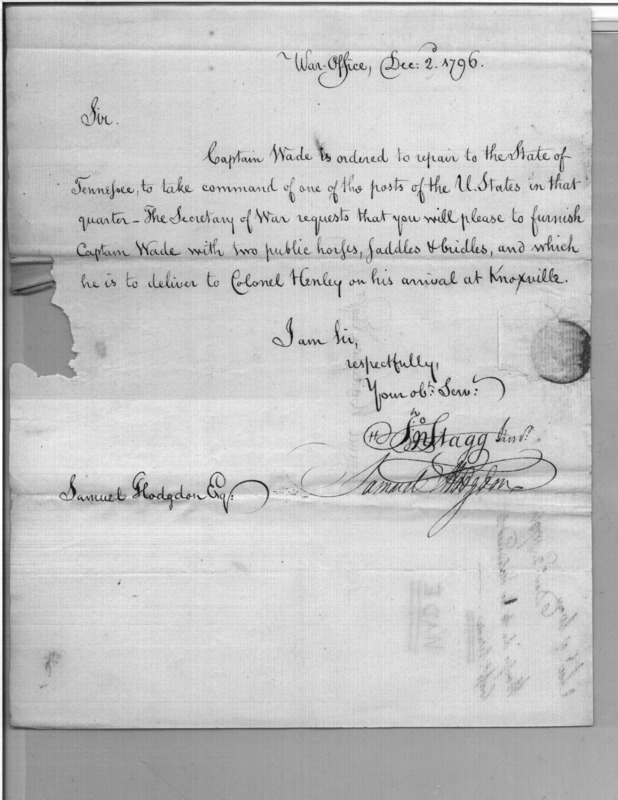 War-Office, Dec: 2d. 1796.
Sir.
Captain Wade is ordered to repair to the State of
Tennessee, to take command of one of the posts of the U. States in that
quarter – The Secretary of War requests that you will please to furnish
Captain Wade with two public horses, saddles & bridles, and which
he is to deliver to Colonel Henley on his arrival at Knoxville.
I am Sir,
respectfully,
Your obt: Servt:
Jno Stagg Junr.
Samuel Hodgdon
Samuel Hodgdon Esqr: